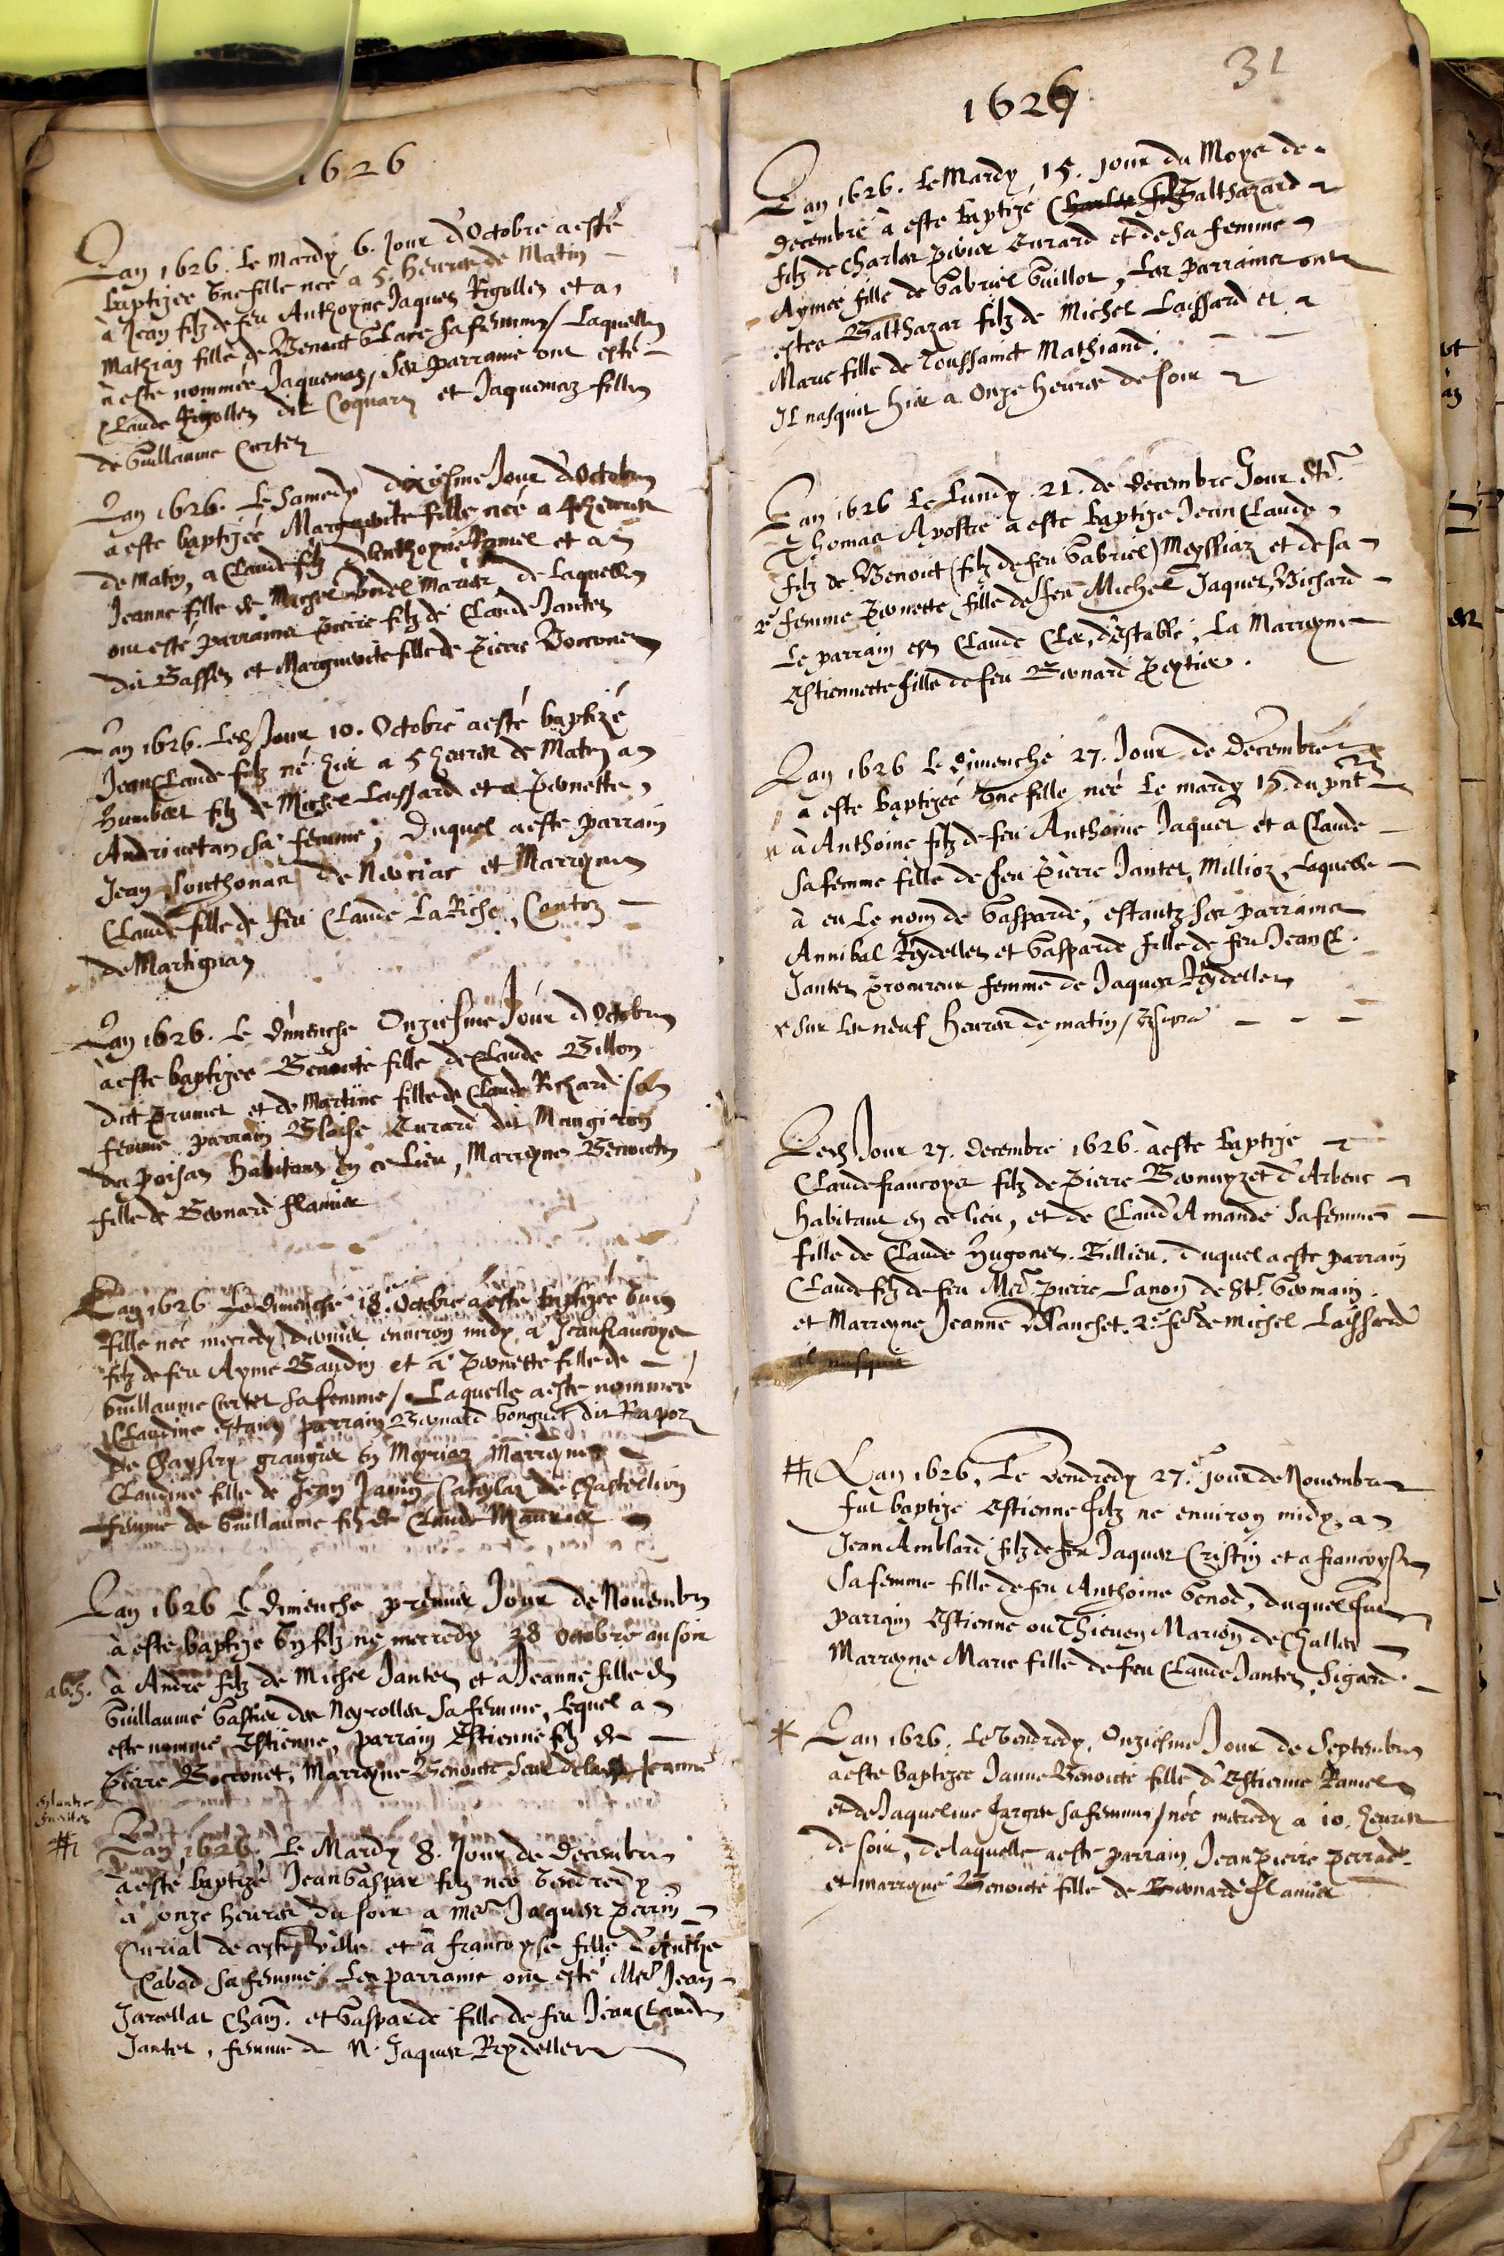 1626
Lan 1626. Le mardy 6. Jour d'Octobre a esté
baptizee une fille neé a 5. heures de Matin
à Jean filz de feu Anthoyne Jaques Rigollet et a
Mathian fille de Benoict sa femme / Laquelle
a este nommée Jaquemaz, Ses parrains ont esté
Claude Rigollet dit Coquarz et Jaquemaz fille
de Guillaume Certet
Lan 1626. Le Samedy dixiesme Jour d'Octobre
a este baptizeé Marguerite fille neé a 4 heures
de Matin, a Claude filz d'Anthoyne Ramel et a
Jeanne fille de Michel de Laquelle
ont este parrains Pierre filz de Claude Jantet
dit Gasses et Marguerite fille de Pierre Bocconet
Lan 1626. Led Jour 10. Octobre a esté baptizé
Jean Claude filz né hier a 5 heures de Matin a
Humbert filz de Michel Laissard et a Pernette
Andrivetan sa femme, Duquel a este parrain
Jean Southonax de Neyriac et Marreyne
Claude fille de feu Claude La Riche, Conton
de Martignaz
Lan 1626. Le Dimenche Onziesme Jour d'Octobre
a este baptizee Benoite fille de Claude Billon
dict Prumet et de Martine fille de Claude Richard sa
femme parrain Blaise Curard dit Mangiron
du Poisat habitant en ce lieu, Marreyne Benoicte
fille de Bernard flamier
Lan 1626 Le dimenche 18. Octobre a este baptizee une
fille neé mecredy dernier environ midy, a Jean francoys
filz de feu Ayme Baudin et a Pernette fille de
Guillaume Certet sa femme / Laquelle a este nommeé
Claudine estant parrain Bernard Gonguet dit Rapoz
de grangier en Meyriaz Marreyne
Claudine fille de Jean Janin de Chastellion
femme de Guillaume filz de Claude Maurier
Lan 1626 Le dimenche premier Jour de Novembre
à este baptize un filz né mecredy 28 Octobre au soir
à André filz de Michel Jantet et a Jeanne fille de
Guillaume Gastier des Neyrolles sa femme, Lequel a
este nommé Estienne, parrain Estienne filz de
Pierre Bocconet, Marreyne Benoicte Jeanne
Lan 1626. Le Mardy 8. Jour de Decembre
a esté baptizé Jean Gaspar filz neé Vendredy
à onze heures du soir a Mre Jaques Perrin
Curial de ceste ville et a francoyse fille d'Anthe
Cabod sa femme Les parrains ont esté Mre Jean
Jarcellat Chan. et Gasparde fille de feu Jean Claude
Jantet, femme de N. Jaques Reydellet
31
1626
Lan 1626. Le Mardy 15. Jour du Moys de
Decembre à este baptizé Balthazard
filz de Charles Curard et de sa femme
Aymeé fille de Gabriel Guillot, Les parrains ont
estes Balthazar filz de Michel Laissard et
Marie fille de Toussainct Mathiand.
Il nasquit hier a Onze heures de soir
Lan 1626 Le Lundy 21. de decembre Jour St
Thomas Apostre a este baptize Jean Claude
filz de Benoict (filz de feu Gabriel) Meyssiaz et de sa
2e femme Pernette fille de feu Michel Jaquet, Bichard
Le parrain est Claude Clerc, d'Estable, La Marreyne
Estiennette fille de feu Bernard
Lan 1626 Le Dimenche 27. Jour de decembre
a este baptizeé une fille neé Le mardy 15. du pnt
à Anthoine filz de feu Anthoine Jaquet et a Claude
sa femme fille de feu Pierre Jantet, Millioz, Laquelle
à eu Le nom de Gasparde, estantz ses parrains
Annibal Reydellet et Gasparde fille de feu Jean Cl.
Jantet procureur femme de Jaques Reydellet
sur les neuf heures de matin
Led Jour 27. Decembre 1626. à este baptize
Claude francoys filz de Pierre d'Arbent
habitant en ce lieu, et de Claud'Amande sa femme
fille de Claude Hugonet. Billieu. duquel a este parrain
Claude filz de feu Mre pierre Lanoy de St Germain.
et Marreyne Jeanne Planchet. 2e fe de michel Laissard
il nasquit
Lan 1626. Le Vendredy 27. Jour de Novembre
fut baptizé Estienne filz né environ midy a
Jean Amblard filz de feu Jaques Cristin et a francoyse
sa femme fille de feu Anthoine Genod, duquel fut
parrain Estienne ou Thieven Marion de Challes
Marreyne Marie fille de feu Claude Jantet, Sigard.
Lan 1626. Le Vendredy, Onziesme Jour de Septembre
a este baptizee Janne Benoicte fille d'Estienne Ramel
et de Jaqueline sa femme / neé mecredy a 10. heures
de soir, de laquelle a este parrain Jean Pierre
et marreyne Benoicte fille de Bernard flamier